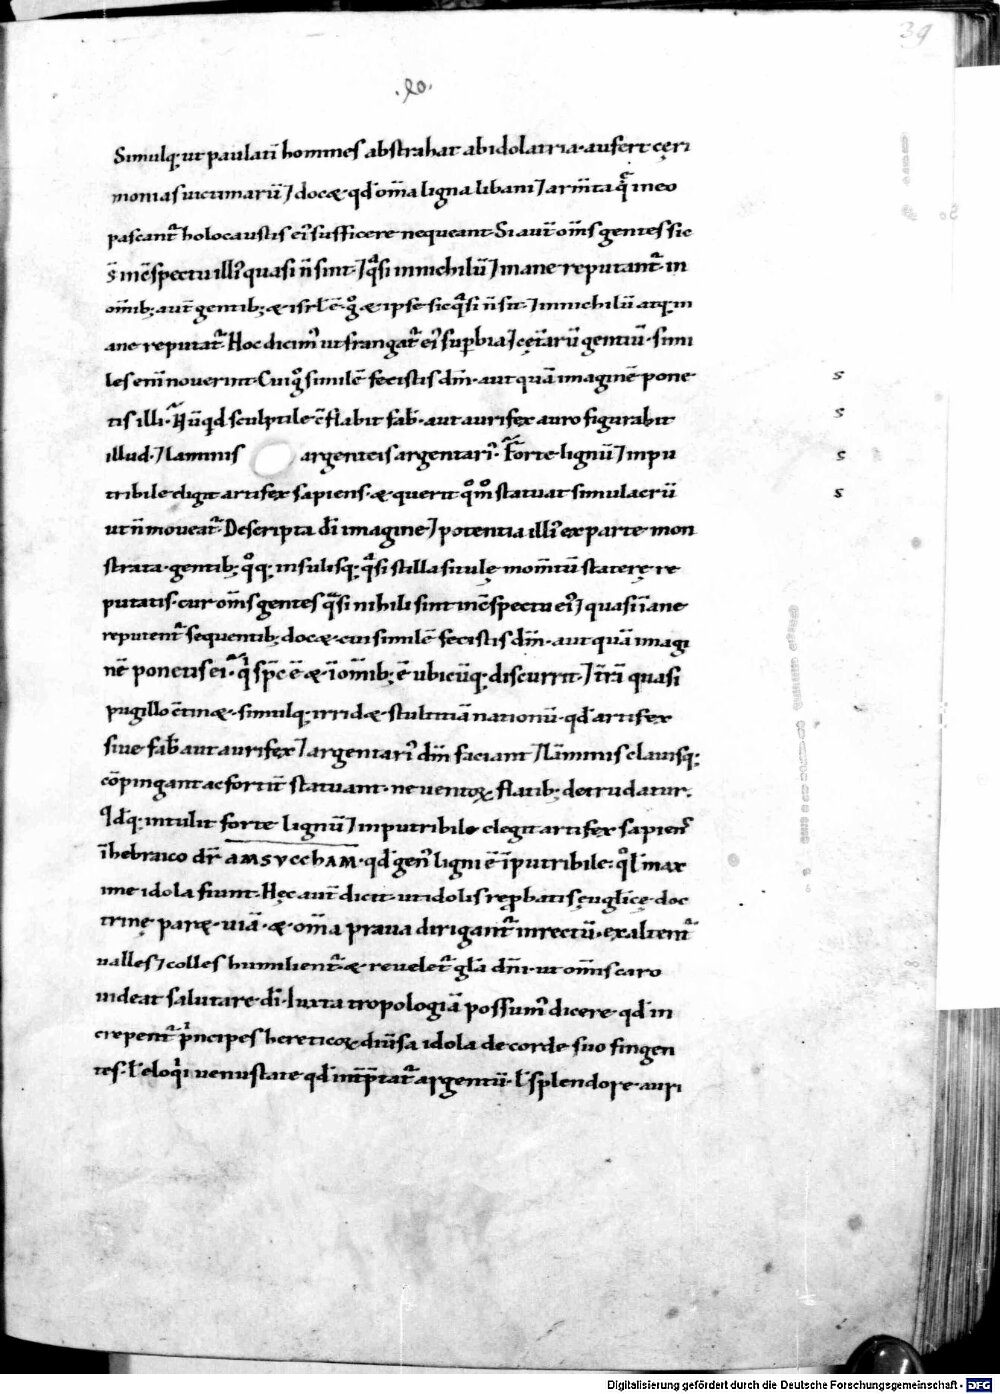 39
.lo.
Simulq; ut paulatī homines abstrahat ab idolatria· aufert cęri
monias uictimarū ⁊ docæ· qđ om̅a ligna libani ⁊ arm̅ta q̄ in eo
pascant̄ holocaustis ei᾽ sufficere nequeant· Si aut̄ om̅s gentes sic
s̄ in c̄spectu illi᾽ quasi n̄ sint· ⁊ q̊si in nichilū ⁊ inane reputant̄· in
om̅ib; aut̄ gentib; æ isrl̄ ē· g̊ æ ipse sic q̊si n̄ sit· ⁊ in nichilū atq; in
ane reputat̄· Hoc dicim᾽ ut frangat̄ ei᾽ sup̄bia ⁊ cęt̄arū gentiū· simi
les eni̅ noverint· Cui g̊ similē fecistis dm̅· aut quā imaginē pone
tis illi· Nūq̇d sculptile c̄flabit fab̄· aut aurifex auro figurabit
illud· ⁊ laminis argenteis argentari᾽· Forte lignū ⁊ inpu
tribile eligit artifex sapiens· æ querit q̊m̊ statuat simulacrū
ut n̄ moveat̄· Descripta di̅ imagine ⁊ potentia illi᾽ ex parte mon
strata· gentib; q̊q; insulisq; q̊si stilla situlę mom̅tū staterę re
putatis· cur om̅s gentes q̊si nihili sint in c̄spectu ei᾽ ⁊ quasi īane
reputent̄ sequentib; docæ· cui similē fecistis dm̅· aut quā imagi
nē ponetis ei· q̇ sp̄c ē æ ī om̅ib; ē ubicūq; discurrit· ⁊ t̄rā quasi
pugillo c̄tinæ· simulq; irridæ stultitiā nationū· qđ artifex
sive fab̄ aut aurifex ⁊ argentari᾽ dm̅ faciant ⁊ lām̅inis clavisq;
cōpingant ac fortit̄ statuant· ne ventoꝝ flatib; detrudatur·
Qđq; intulit forte lignū ⁊ inputribile elegit artifex sapien᾽
ī hebraico dr̄ AMSVCCHAM· qđ gen᾽ ligni ē īputribile· q̊ l̄ max
ime idola fiunt· Hęc aut̄ dicit· ut idolis rep̄batis ęuglicę doc
trinę paræ· viā· æ om̅a prava dirigant̄ in rectū· exaltent̄
valles ⁊ colles humilient̄ æ revelet̄ gl̄a dm̅i· ut om̅is caro
videat salutare di̅· Iuxta tropologiā possum᾽ dicere· qđ in
crepent̄ p̄ncipes hereticoꝝ div̄sa idola de corde suo fingen
tes· l̄ eloq̇i venustate qđ int̄p̄tat̄ argentū· l̄ splendore auri
s
s
s
s
Digitalisierung gefördert durch die Deutsche Forschungsgemeinschaft - DFG